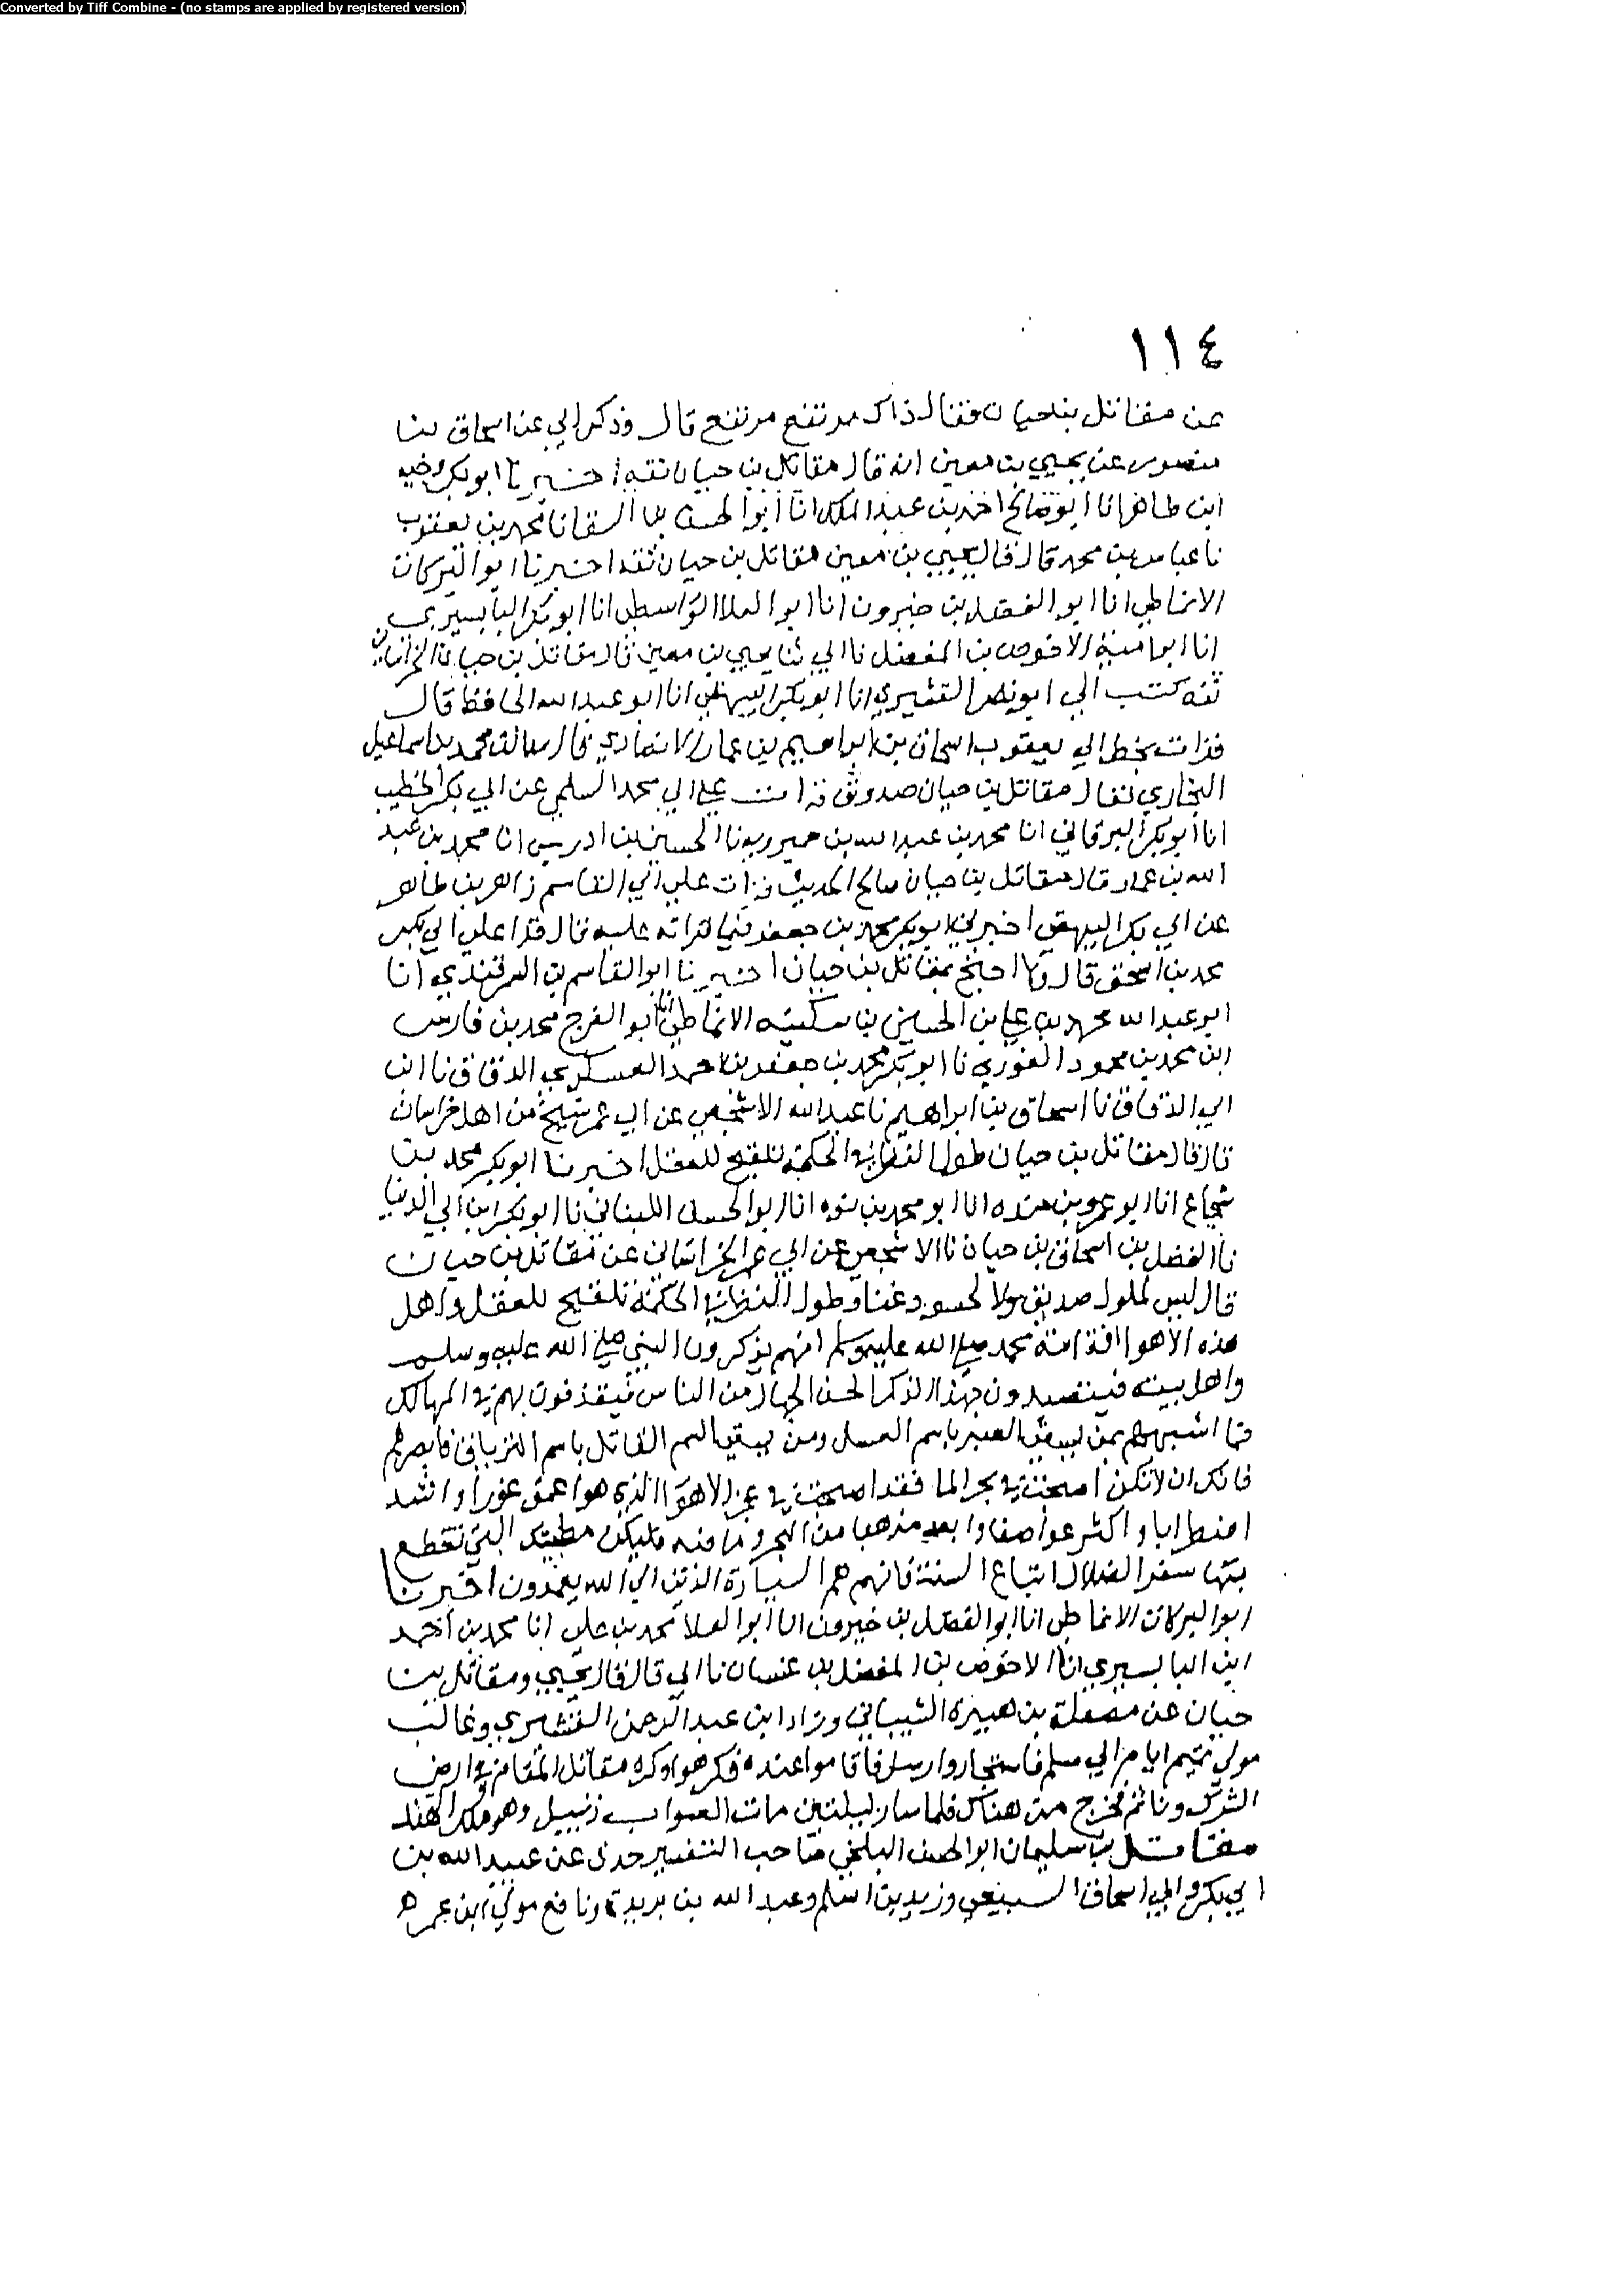 Converted by Tiff Combine - (no stamps are applied by registered version)
١١٤
عن مقاتل بن حيان فقال ذاك مرتفع مرتفع قال وذكر ابي عن اسحاق بن
منصور عن يحيى بن معين انه قال مقاتل بن حيان ثقه اخبرنا ابو بكر وجيه
ابن طاهر انا ابو صالح احمد بن عبد الملك انا ابو الحسن بن السقا نا محمد بن يعقوب
نا عباس بن محمد قال قال يحيى بن معين مقاتل بن حيان ثقه اخبرنا ابو البركات
الانماطي انا ابو الفضل بن خيرون انا ابو العلا الواسطي انا ابو بكر البابسيري
انا ابو امية الاحوص بن المفضل نا ابي ثنا يحيى بن معين قال مقاتل بن حيان الخراساني
ثقه كتب الي ابو نصر القشيري انا ابو بكر البيهقي انا ابو عبد الله الحافظ قال
قرات بخط ابي يعقوب اسحاق بن ابراهيم بن عمار الانصاري قال سالت محمد بن اسماعيل
البخاري فقال مقاتل بن حيان صدوق قرات علي ابي محمد السلمي عن ابي بكر الخطيب
انا ابو بكر البرقاني انا محمد بن عبد الله بن خميرويه نا الحسين بن ادريس انا محمد بن عبد
الله بن عمار قال مقاتل بن حيان صالح الحديث قرات علي ابي القاسم زاهر بن طاهر
عن ابي بكر البيهقي اخبرني ابو بكر محمد بن جعفر فيما قراته عليه قال قرا علي ابي بكر
محمد بن اسحق قال ولا احتج بمقاتل بن حيان اخبرنا ابو القاسم بن السمرقندي انا
ابو عبد الله محمد بن علي بن الحسين بن سكينه الانماطي انا ابو الفرج محمد بن فارس
ابن محمد بن محمود الغوري نا ابو بكر محمد بن جعفر بن احمد العسكري الدقاق نا ابن
ابي الدقاق نا اسحاق بن ابراهيم نا عبد الله الاشجعي عن ابي عمر شيخ من اهل خراسان
قال قال مقاتل بن حيان طول النظر في الحكمة تلقيح للعقل اخبرنا ابو بكر محمد بن
شجاع انا ابو عمرو بن منده انا ابو محمد بن يوه انا ابو الحسن اللبناني نا ابو بكر بن ابي الدنيا
نا الفضل بن اسحاق بن حيان نا الاشجعي عن ابي عمر الخراساني عن مقاتل بن حيان
قال ليس لملول صديق ولا لحسود غنا وطول النظر في الحكمة تلقيح للعقل واهل
هذه الاهوا افة امة محمد صلى الله عليه وسلم انهم يذكرون النبي صلى الله عليه وسلم
واهل بيته فيتصيدون بهذا الذكر الحسن الجهال من الناس فيقذفون بهم في المهالك
فما اشبههم بمن يسقي الصبر باسم العسل ومن يسقي السم القاتل باسم الترياق فابصرهم
فانك ان لا تكن اصبحت في بحر الما فقد اصبحت في بحر الاهوا الذي هو اعمق غورا واشد
اضطرابا واكثر عواصفا وابعد مذهبا من البحر وما فيه فليكن مطيتك التي تقطع
بها سفر الضلال اتباع السنة فانهم هم السيارة الذين الى الله يعمدون اخبرنا
ابو البركات الانماطي انا ابو الفضل بن خيرون انا ابو العلا محمد بن علي انا محمد بن احمد
ابن البابسيري انا الاحوص بن المفضل بن غسان نا ابي قال قال يحيى ومقاتل بن
حيان عن مصقلة بن هبيرة الشيباني وزاد ابن عبد الرحمن القشيري وغالب
مولى تيم ايام ابي مسلم فاستجاروا رسل فاقاموا عنده فكرهوا وكره مقاتل المقام في ارض
الشرك وناثم فخرج من هناك فلما سار ليلتين مات الصواب زنبيل وهو ملك الهند
مقاتل بن سليمان ابو الحسن البلخي صاحب التفسير حدث عن عبيد الله بن
ابي بكر وابي اسحاق السبيعي وزيد بن اسلم وعبد الله بن بريدة ونافع مولى ابن عمر